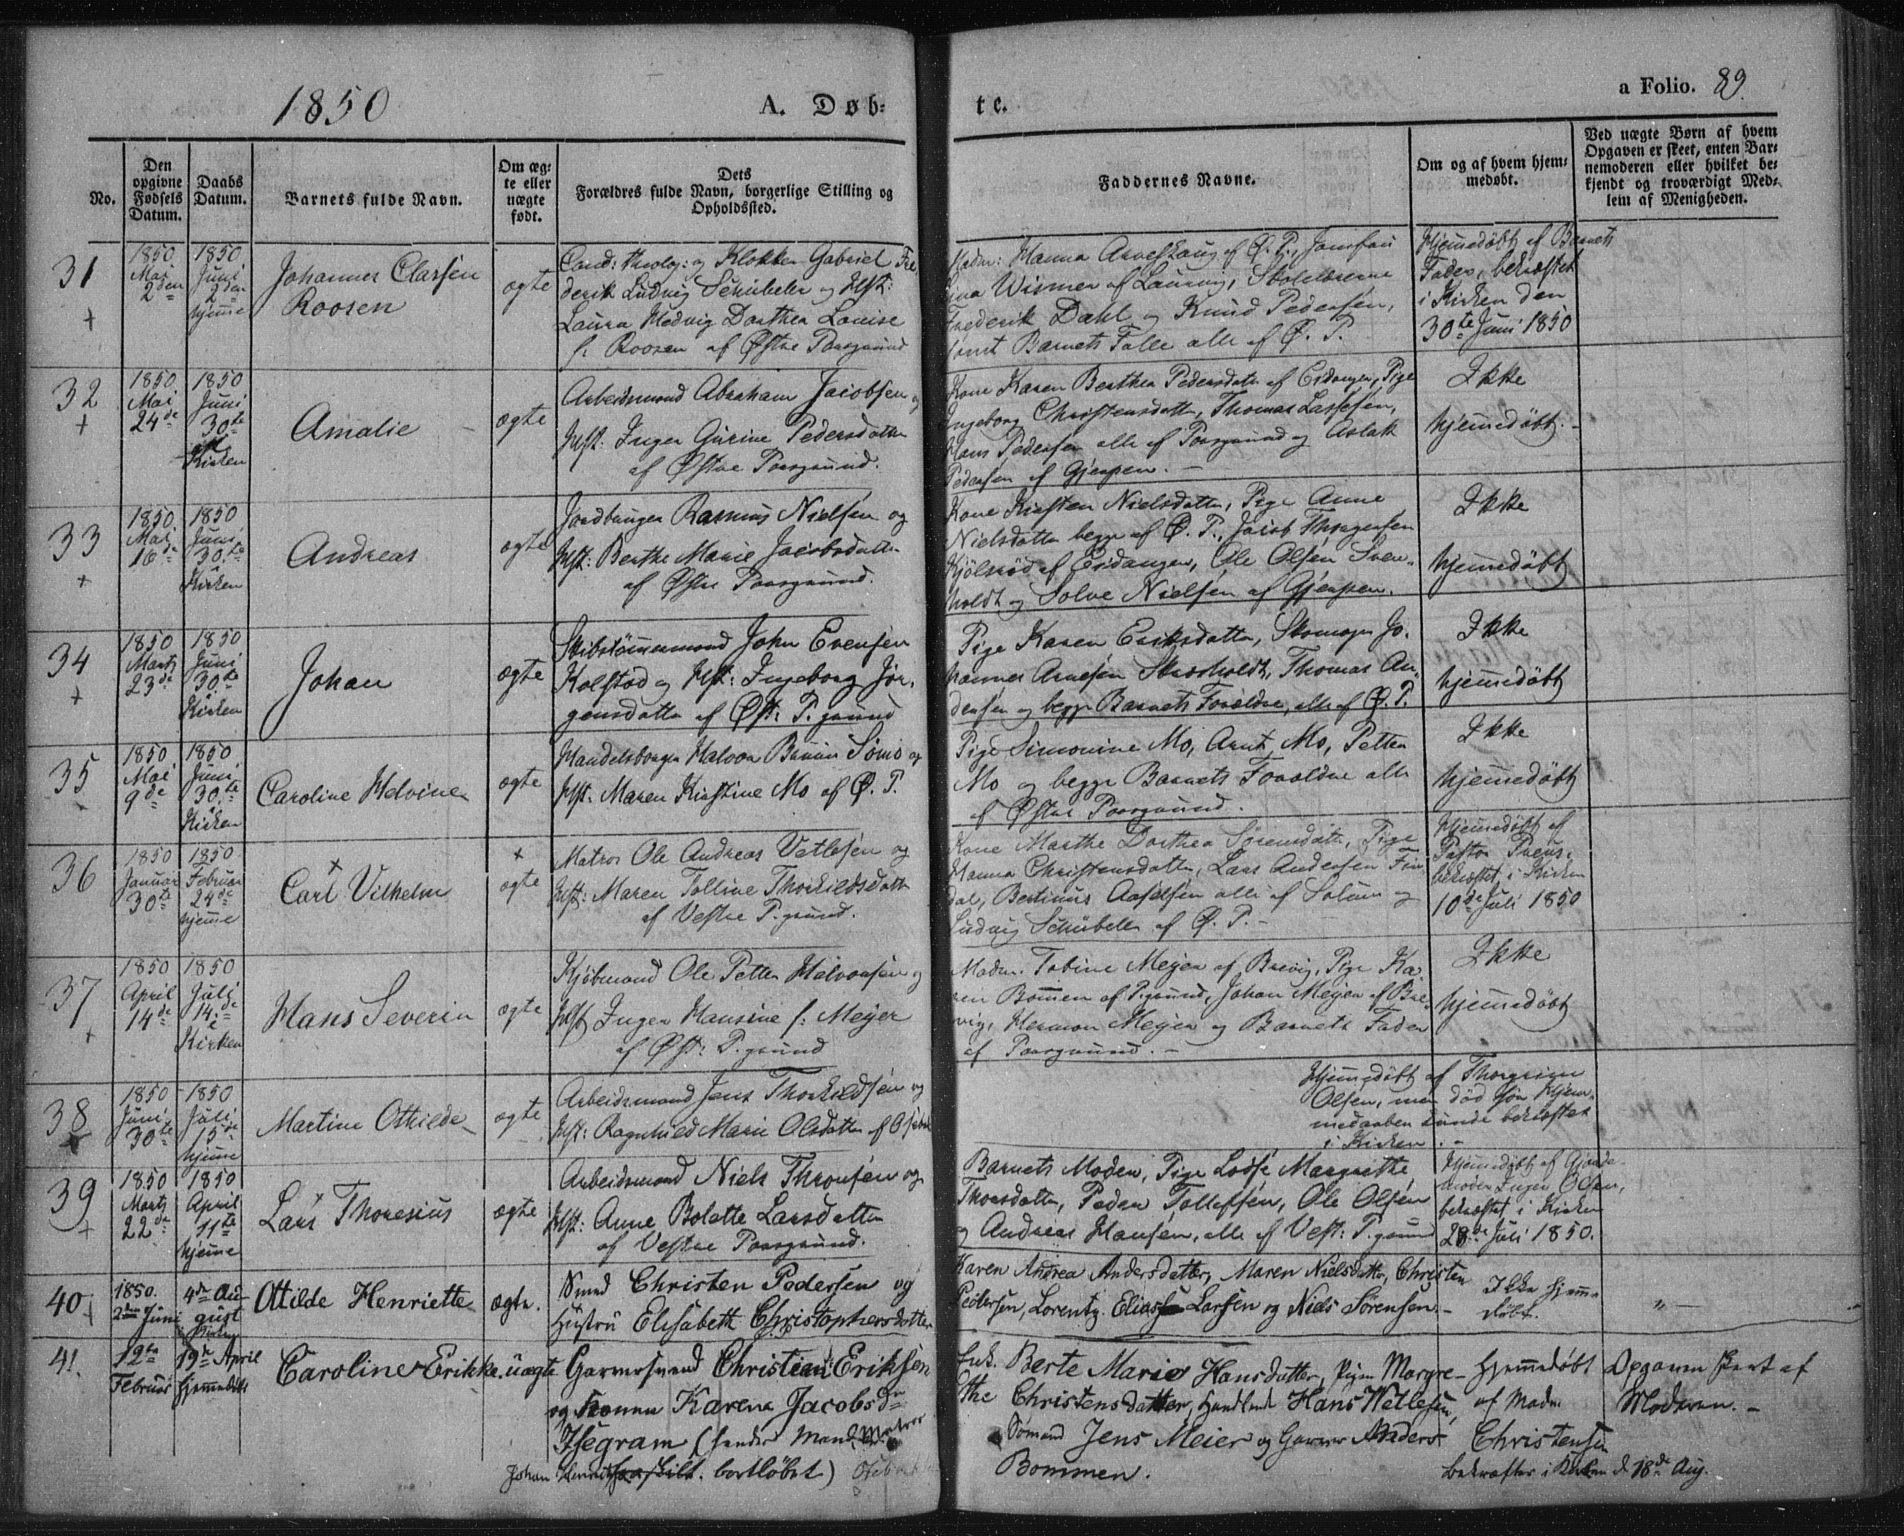 1850
A. Døb-
te.
a Folio. 89.
No.
Den opgivne Fødsels Datum.
Daabs Datum.
Barnets fulde Navn.
Om ægte eller uægte født.
Dets Forældres fulde Navn, borgerlige Stilling og Opholdssted.
Faddernes Navne.
Om og af hvem hjemmedøbt.
Ved uægte Børn af hvem Opgaven er skeet, enten Barnemoderen eller hvilket bekjendt og troværdigt Medlem af Menigheden.
31
+
1850 Mai 2den
1850 Juni 2den hjemme
Johannes Clarsen
Roosen
ægte
Cand: theolog: og Klokker Gabriel Fre
derik Ludvig Schübeler og Hst:
Laura Hedvig Dorthea Louise
f: Roosen af Østre Porsgrund
Madm: Hanna Arveskoug af Ø. P., Jomfru
Lina Wismer af Laurvig, Skolelærerne
Frederik Dahl og Knud Pedersen,
samt Barnets Fader alle af Ø. P.
Hjemmedøbt af Barnets
Fader, bekræftet
i Kirken den
30te Juni 1850
32
+
1850 Mai 24de
1850 Juni 30te i Kirken
Amalie
ægte
Arbeidsmand Abraham Jacobsen og
Hst: Inger Gurine Pedersdatter
af Østre Porsgrund.
Kone Karen Berthea Pedersdatter af Eidanger, Pige
Ingeborg Christensdatter, Thomas Lassesen,
Hans Pedersen alle af Porsgrund og Aslak
Pedersen af Gjerpen. -
Ikke
hjemmedøbt. -
33
+
1850 Mai 16de
1850 Juni 30te i Kirken
Andreas
ægte
Jordbruger Rasmus Nielsen og
Hst: Berthe Marie Jacobsdatter
af Østre Porsgrund.
Kone Kirsten Nielsdatter, Pige Anne
Nielsdatter begge af Ø. P., Jacob Thorgersen
Kjølnrød af Eidanger, Ole Olsen Sven-
holdt og Solve Nielsen af Gjerpen.
Ikke
hjemmedøbt
34
+
1850 Marts 23de
1850 Juni 30te i Kirken
Johan
ægte
Skibstømmermand John Evensen
Kolstad og Hst: Ingeborg Jør-
gensdatter af Øst: P.grund
Pige Karen Eriksdatter, Skomager Jo-
hannes Arnesen Skrosholdt, Thomas An-
dersen og begge Barnets Forældre, alle af Ø. P.
Ikke
hjemmedøbt
35
1850 Mai 9de
1850 Juni 30te i Kirken
Caroline Helvine
ægte
Handelsborger Halvor Bruun Sømo og
Hst: Maren Kirstine Mo af Ø. P.
Pige Simonine Mo, Arnt Mo, Petter
Mo og begge Barnets Forældre alle
af Østre Porsgrund.
Ikke
hjemmedøbt
36
1850 Januar 30te
1850 Februar 24de hjemme
+
Carl Vilhelm
+
ægte
Matros Ole Andreas Vetlesen og
Hst: Maren Tolline Thorkildsdatter
af Vestre P.grund.
Kone Marthe Dorthea Sørensdatter, Pige
Hanna Christensdatter, Lars Andersen Fin
dal, Bertinus Aslesen alle af Solum og
Ludvig Schübeler af Ø. P. -
Hjemmedøbt af
Pastor Preus,
bekræftet i Kirken
10de Juli 1850
37
+
1850 April 14de
1850 Juli 14de i Kirken
Hans Severin
ægte
Kjøbmand Ole Petter Halvorsen og
Hst Inger Hansine f: Meyer
af Øst: P.grund
Madm. Tobine Meyer af Brevig, Pige Ka-
ren Bommen af P.grund, Johan Meyer af Bre-
vig, Herman Meyer og Barnets Fader
af Porsgrund. -
Ikke
hjemmedøbt
38
1850 Juni 30te
1850 Juli 15de hjemme
Martine Othilde
ægte
Arbeidsmand Jens Thorkildsen og
Hst: Ragnhild Marie Olsdatter af Osebak
Hjemmedøbt af Thorgrim
Olsen, men død før Hjem-
medaaben kunde bekræftes
i Kirken. -
39
+
1850 Marts 22de
1850 April 11te hjemme
+
Lars Thoresius
ægte
Arbeidsmand Niels Thronsen og
Hst: Anne Bolette Larsdatter
af Vestre Porsgrund.
Barnets Moder, Pige Lovise Margrethe
Thorsdatter, Peder Tollefsen, Ole Olsen
og Andreas Hansen, alle af Vest: P.grund
Hjemmedøbt af Gjorde-
moder Inger Olsen,
bekræftet i Kirken
28de Juli 1850.
40
+
1850. 2den Juni
4de August i Kirken
Ottilde Henriette
ægte.
Smed Christen Pedersen og
Hustru Elisabeth Christophersdatter
Karen Andrea Andersdatter, Maren Nielsdatter, Christen
Pedersen, Lorentz Elias Larsen og Niels Sørensen. -
Ikke hjemme-
døbt.
" -
41.
12te Februar
19de April hjemmedøbt
Caroline Erikke.
uægte
Garversvend Christian Eriksen
og Konen Karena Jacobsdr
Isegram (hendes Mand, Matros
Johan Henrik bortløbet)
Enk. Berte Marie Hansdatter, Pigen Margre-
the Christensdatter, Handlende Hans Wetlesen,
Sømand Jens Meier og Garver Anders
Bommen.
Hjemmedøbt
af Madm
Christensen
bekræftet i Kirken d 18de Aug.
Opgaven skeet af
Moderen. -